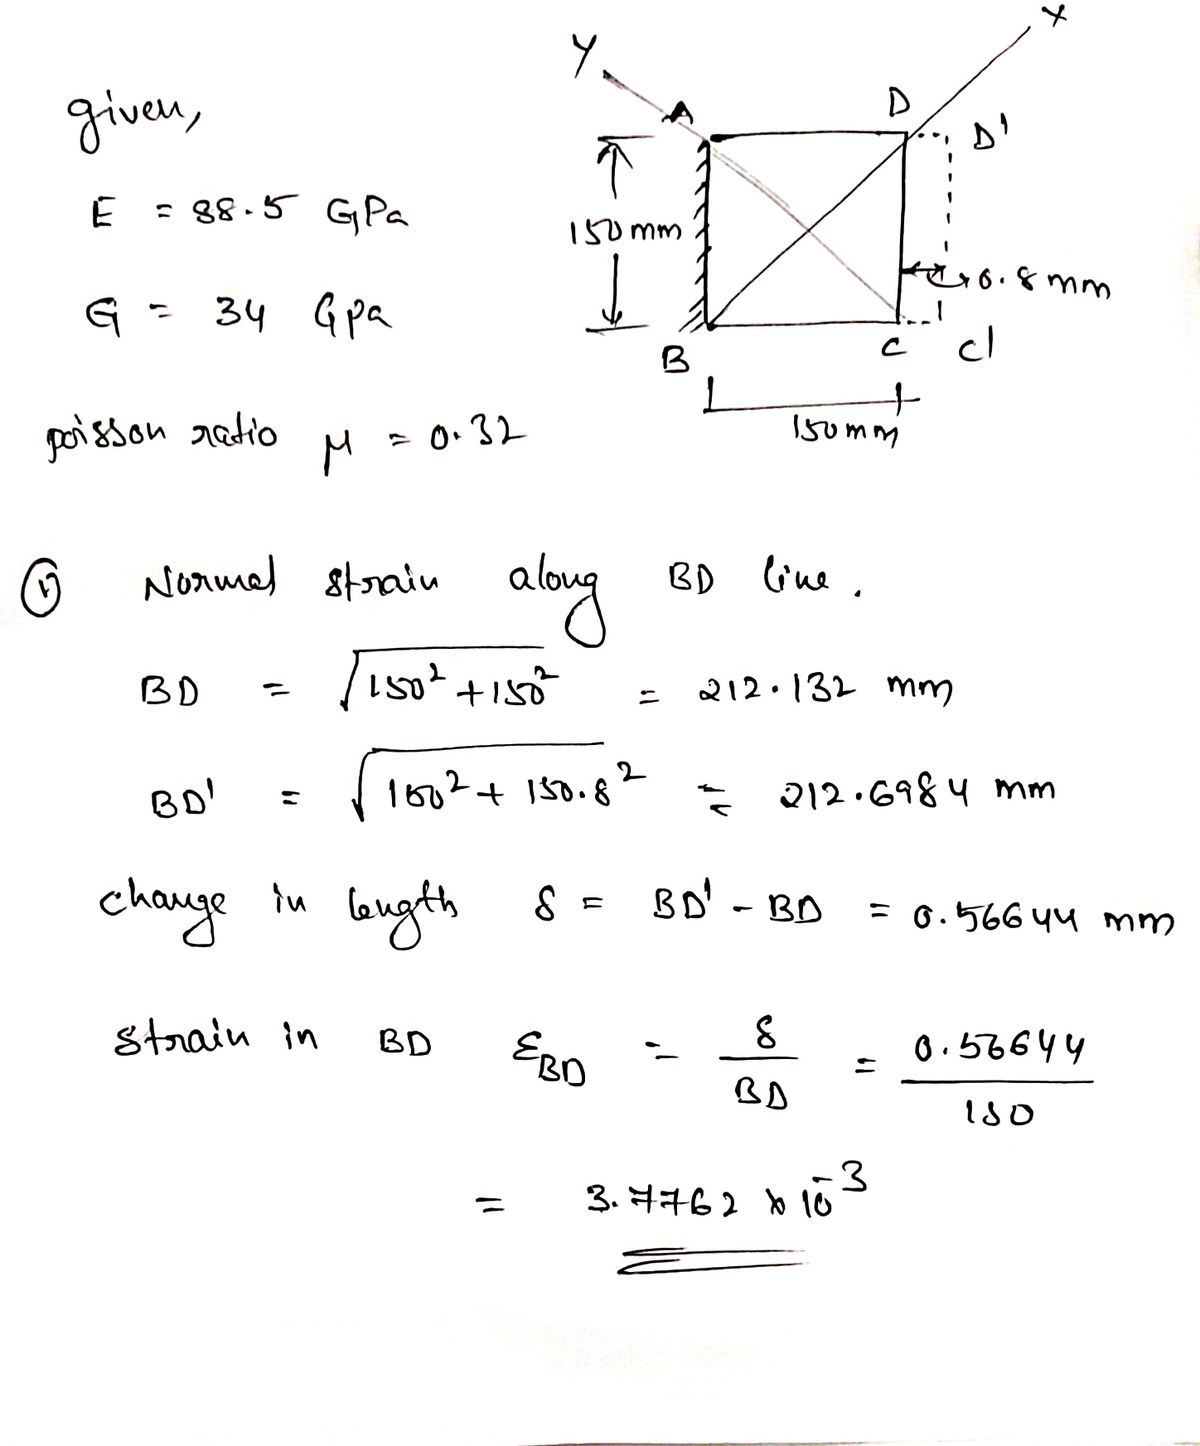 given,
E = 88.5 GPa
G = 34 Gpa
poisson ratio μ = 0.32
Y
X
A
D
D'
150mm
0.8 mm
B
C
C'
150mm
① Normal strain along BD line.
BD = √150² + 150² = 212.132 mm
BD' = √150² + 150.8² = 212.6984 mm
change in length δ = BD' - BD = 0.56644 mm
Strain in BD ε_BD = δ/BD = 0.56644/150
= 3.7762 × 10⁻³